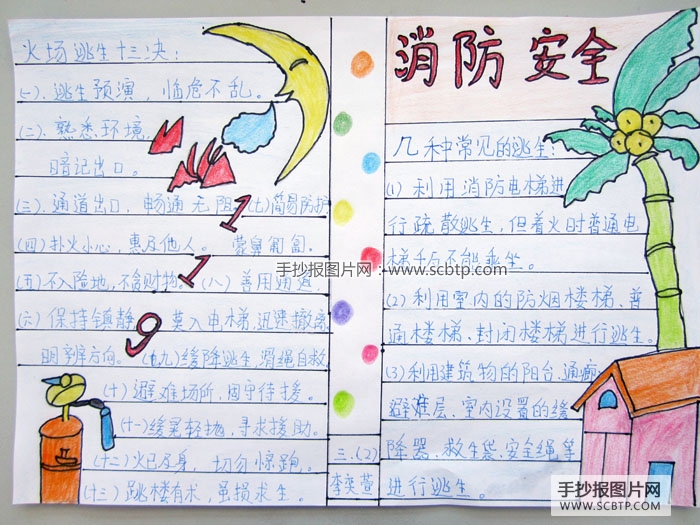 火场逃生十三决:
(一)、逃生预演,临危不乱。
(二)、熟悉环境,
暗记出口。
(三)、通道出口,畅通无阻 (七)简易防护
(四)扑火小心,惠及他人。 蒙鼻匍匐。
(五)不入险地,不贪财物。(八)善用通道,
(六)保持镇静 莫入电梯,迅速撤离
明辨方向。(九)缓降逃生,滑绳自救
(十)避难场所,固守待援。
(十一)缓晃轻抛,寻求援助。
(十二)火已及身,切勿惊跑。
(十三)跳楼有术,虽损求生。
119
消防安全
几种常见的逃生:
(1)利用消防电梯进
行疏散逃生,但着火时普通电
梯千万不能乘坐。
(2)利用室内的防烟楼梯、普
通楼梯、封闭楼梯进行逃生。
(3)利用建筑物的阳台、通廊
避难层、室内设置的缓
降器、救生袋、安全绳等
进行逃生。
三.(2)
李奕萱
手抄报图片网:www.scbtp.com
手抄报图片网
WWW.SCBTP.COM